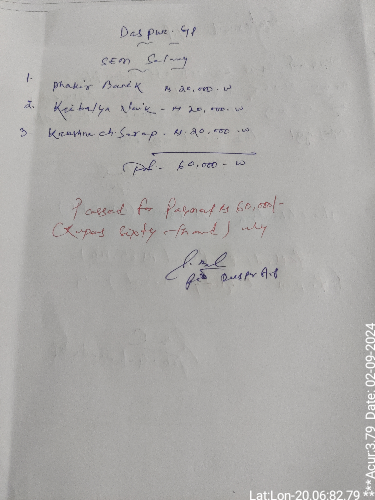 Daspur. GP
SEM Salary
1. Phakir Barik ₨ 20,000.00
2. Kaibalya Naik - ₨ 20,000.00
3 Krushna ch. Sarap - ₨. 20,000.00
60,000.00
Passed for Payment ₨ 60,000/-
(Rupees Sixty thousand) only
Daspur G.P
Lat:Lon-20.06:82.79
***Acur:3.79 Date: 02-09-2024